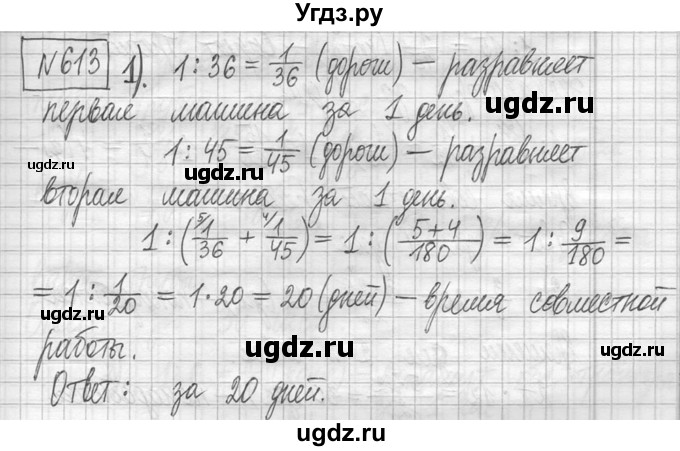 Угдз.ру
№613 1). 1 : 36 = 1/36 (дороги) — разравняет
первая машина за 1 день.
1 : 45 = 1/45 (дороги) — разравняет
вторая машина за 1 день.
1 : (⁵⁾1/36 + ⁴⁾1/45) = 1 : (5+4/180) = 1 : 9/180 =
= 1 : 1/20 = 1·20 = 20 (дней) — время совместной
работы.
Ответ: за 20 дней.
ugdz.ru
ugdz.ru
ugdz.ru
ugdz.ru
ugdz.ru
ugdz.ru
ugdz.ru
ugdz.ru
ugdz.ru
ugdz.ru